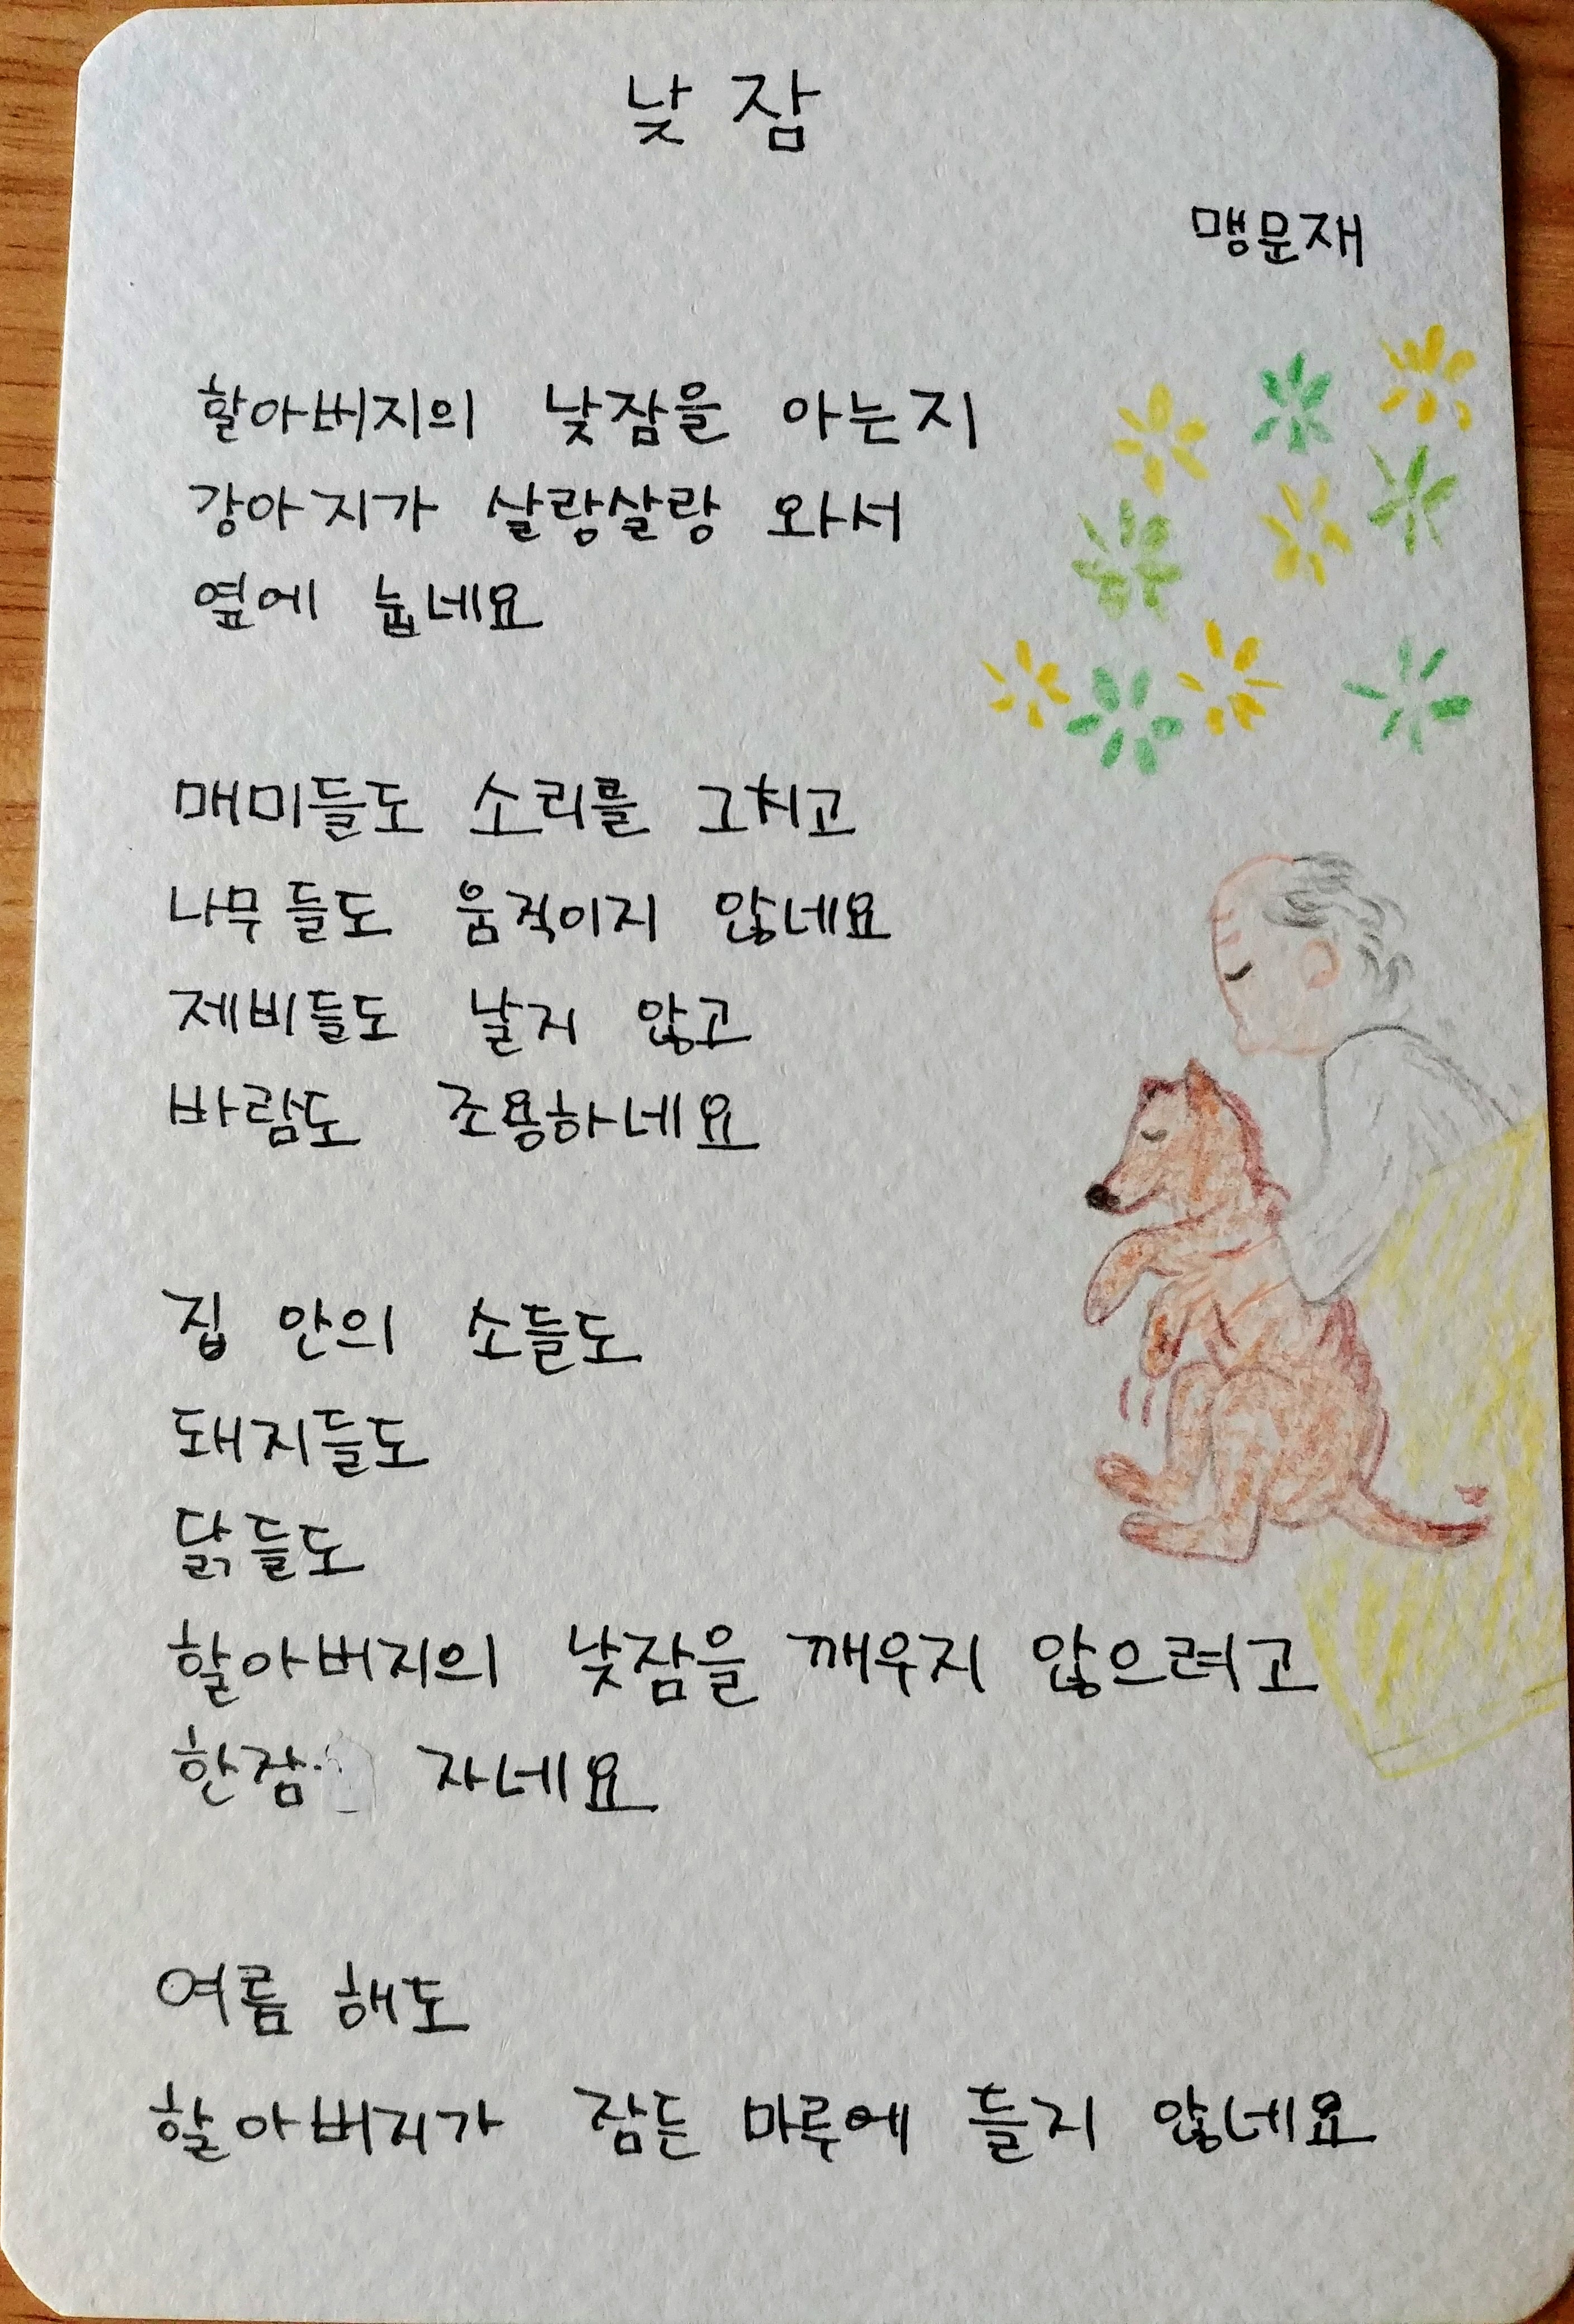 낮잠
맹문재
할아버지의 낮잠을 아는지
강아지가 살랑살랑 와서
옆에 눕네요
매미들도 소리를 그치고
나무들도 움직이지 않네요
제비들도 날지 않고
바람도 조용하네요
집 안의 소들도
돼지들도
닭들도
할아버지의 낮잠을 깨우지 않으려고
한잠 자네요
여름 해도
할아버지가 잠든 마루에 들지 않네요